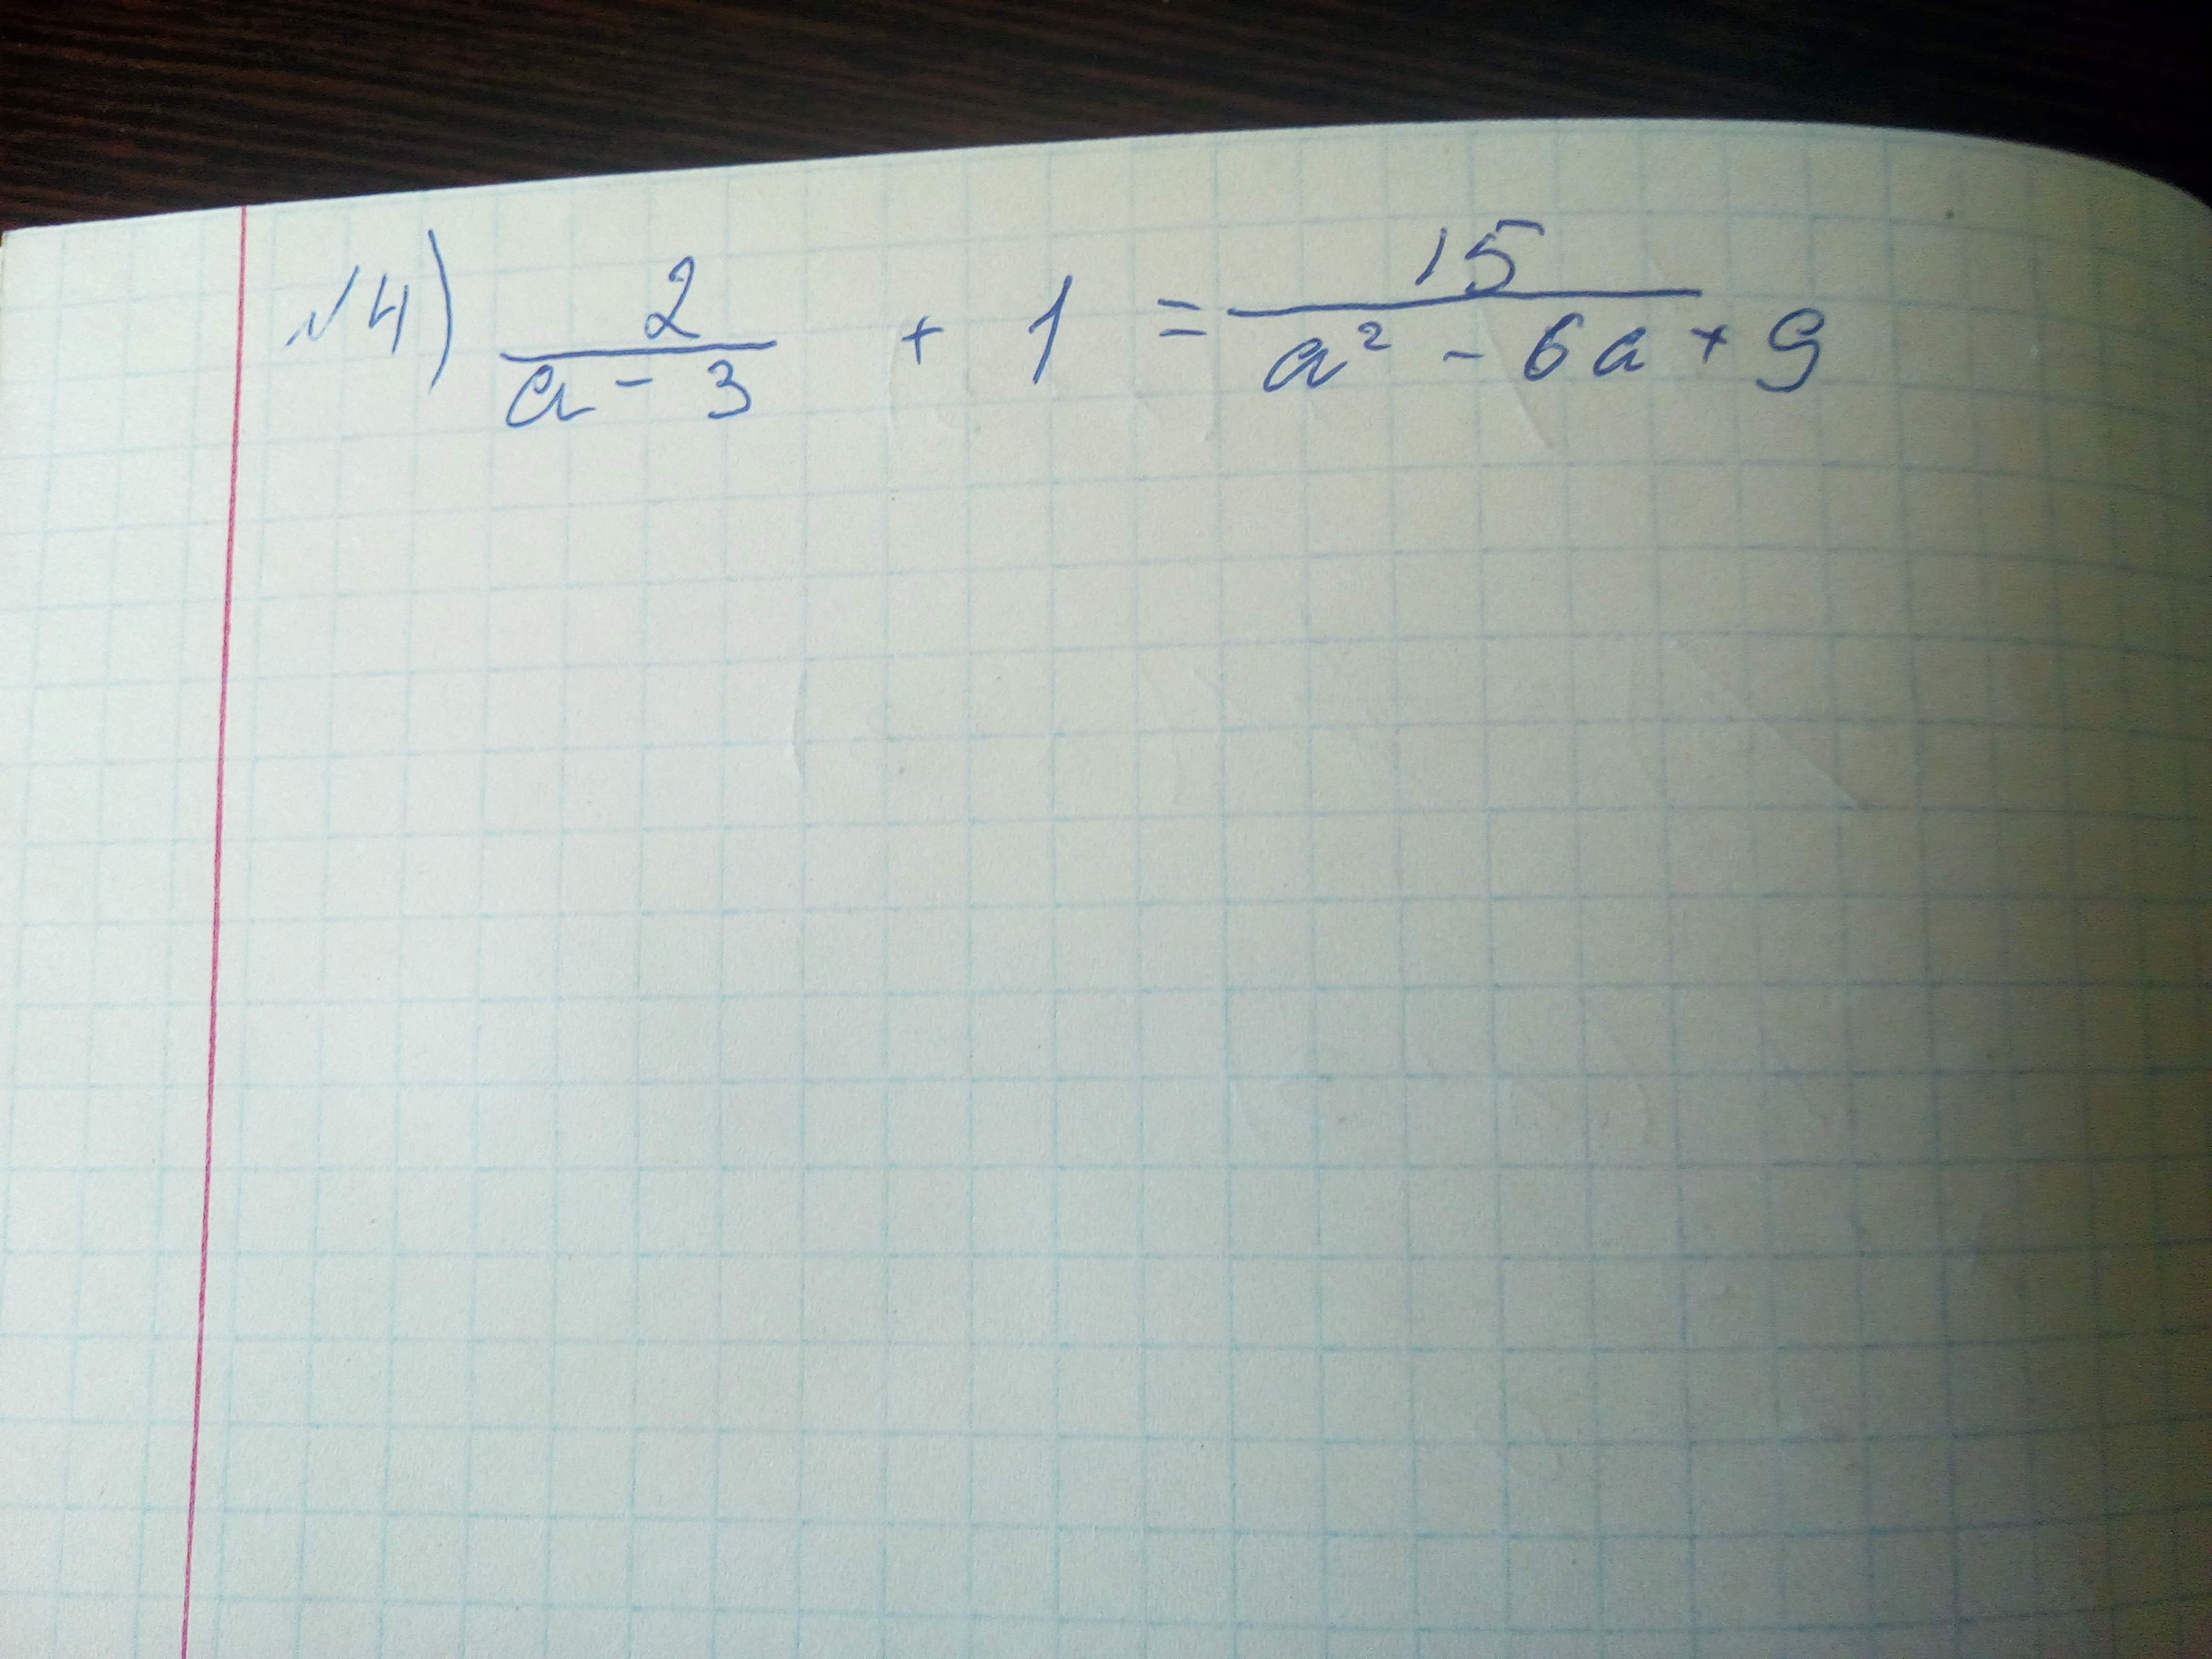 №4) 2/(a - 3) + 1 = 15/(a² - 6a + 9)